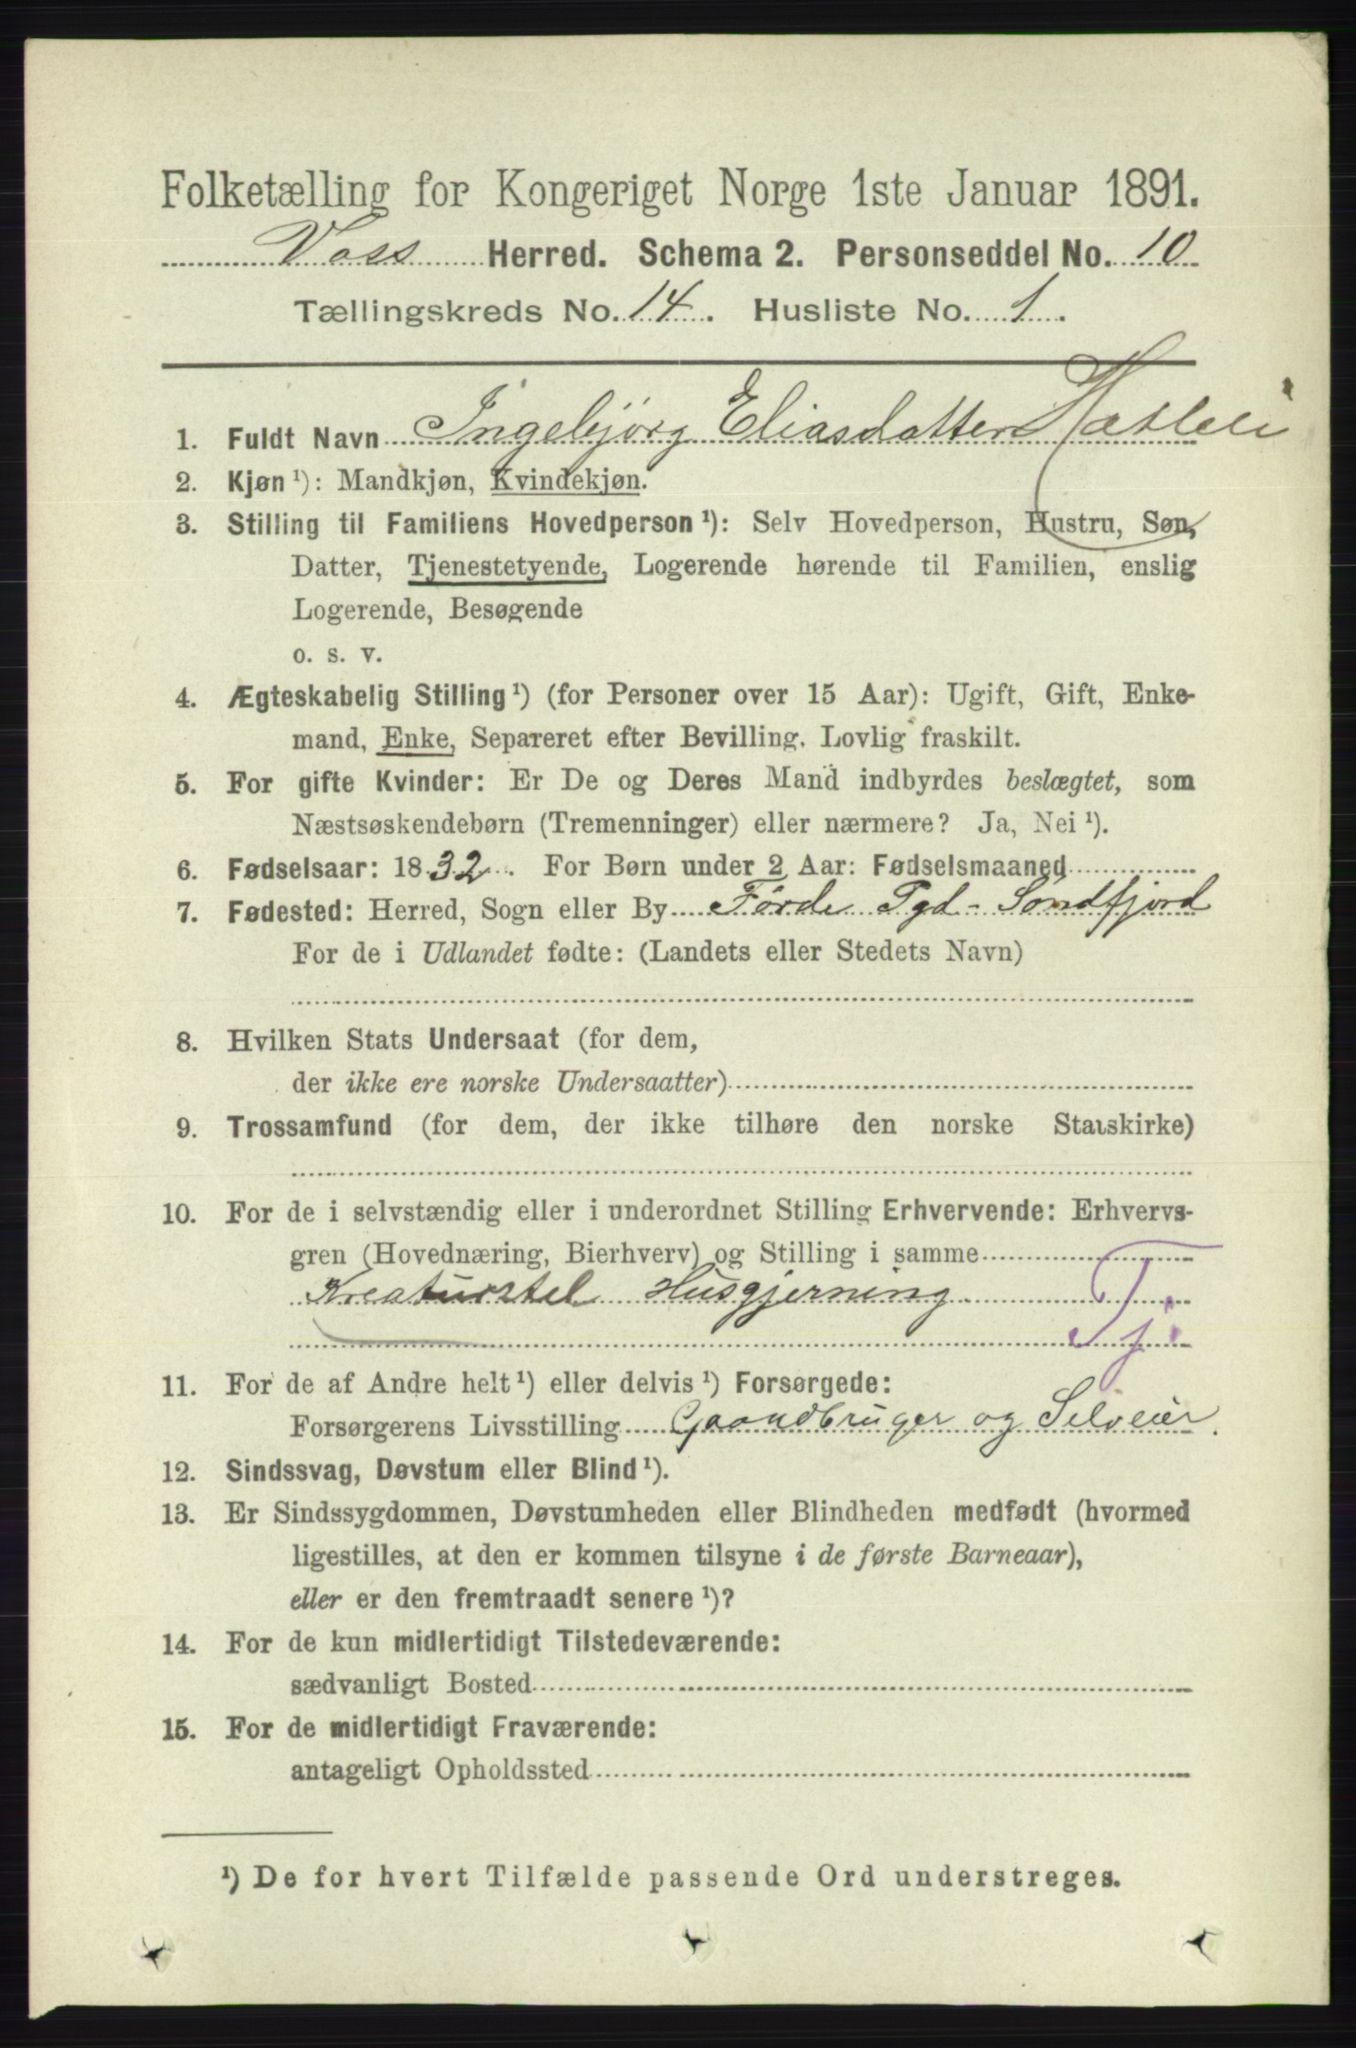 Folketælling for Kongeriget Norge 1ste Januar 1891.
Voss Herred. Schema 2. Personseddel No. 10
Tællingskreds No. 14. Husliste No. 1.
1. Fuldt Navn Ingebjørg Eliasdatter Hatleli
2. Kjøn ¹): Mandkjøn, Kvindekjøn.
3. Stilling til Familiens Hovedperson ¹): Selv Hovedperson, Hustru, Søn,
Datter, Tjenestetyende, Logerende hørende til Familien, enslig
Logerende, Besøgende
o. s. v.
4. Ægteskabelig Stilling ¹) (for Personer over 15 Aar): Ugift, Gift, Enke-
mand, Enke, Separeret efter Bevilling. Lovlig fraskilt.
5. For gifte Kvinder: Er De og Deres Mand indbyrdes beslægtet, som
Næstsøskendebørn (Tremenninger) eller nærmere? Ja, Nei ¹).
6. Fødselsaar: 1832. For Børn under 2 Aar: Fødselsmaaned
7. Fødested: Herred, Sogn eller By Førde Pgd - Søndfjord
For de i Udlandet fødte: (Landets eller Stedets Navn)
8. Hvilken Stats Undersaat (for dem,
der ikke ere norske Undersaatter)
9. Trossamfund (for dem, der ikke tilhøre den norske Statskirke)
10. For de i selvstændig eller i underordnet Stilling Erhvervende: Erhvervs-
gren (Hovednæring, Bierhverv) og Stilling i samme
Kreaturstel Husgjerning Tj.
11. For de af Andre helt ¹) eller delvis ¹) Forsørgede:
Forsørgerens Livsstilling Gaardbruger og Selveier.
12. Sindssvag, Døvstum eller Blind ¹).
13. Er Sindssygdommen, Døvstumheden eller Blindheden medfødt (hvormed
ligestilles, at den er kommen tilsyne i de første Barneaar),
eller er den fremtraadt senere ¹)?
14. For de kun midlertidigt Tilstedeværende:
sædvanligt Bosted
15. For de midlertidigt Fraværende:
antageligt Opholdssted
¹) De for hvert Tilfælde passende Ord understreges.